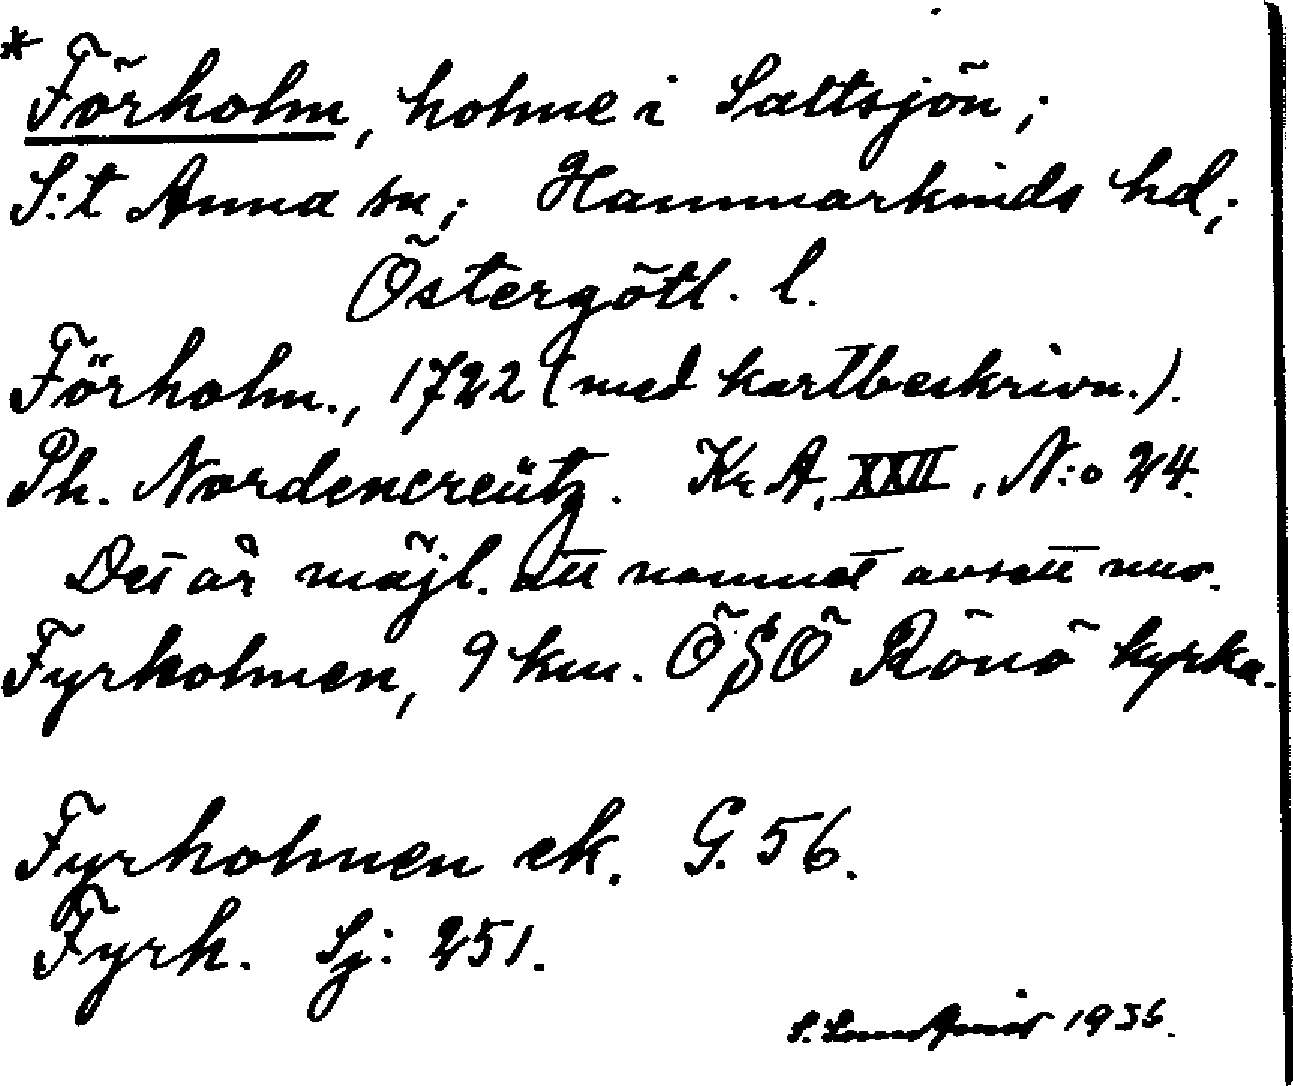 * Förholm, holme i Saltsjön;
S:t Anna sn; Hammarkinds hd;
Östergötl. l.
Förholm., 1722 (med kartbeskrivn.).
Ph. Nordencreütz. Kr A, XXII, N:o 24.
Det är möjl. att namnet avsett nuv.
Fyrholmen, 9 km. ÖSÖ Rönö kyrka.
Fyrholmen ek. G. 56.
Fyrh. Sj: 251.
S. Lundqvist 1936.